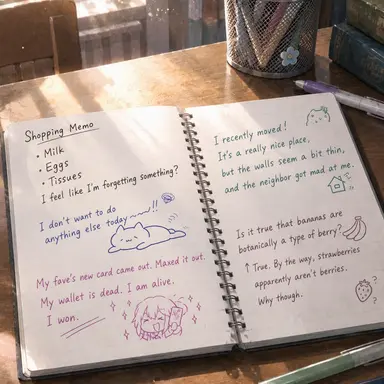 Shopping Memo
• Milk
• Eggs
• Tissues
I feel like I'm forgetting something?
I don't want to do
anything else today~~!!
My fave's new card came out. Maxed it out.
My wallet is dead. I am alive.
I won.
I recently moved!
It's a really nice place,
but the walls seem a bit thin,
and the neighbor got mad at me.
Is it true that bananas are
botanically a type of berry?
↑ True. By the way, strawberries
apparently aren't berries.
Why though.